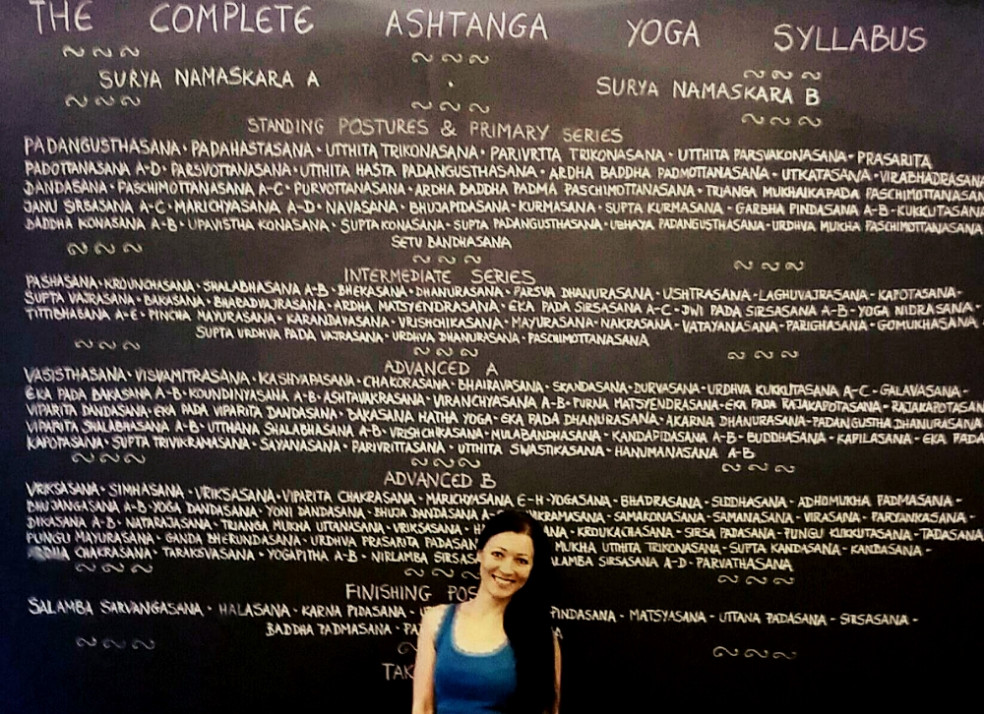 THE COMPLETE ASHTANGA YOGA SYLLABUS
SURYA NAMASKARA A
SURYA NAMASKARA B
STANDING POSTURES & PRIMARY SERIES
PADANGUSTHASANA · PADAHASTASANA · UTTHITA TRIKONASANA · PARIVRTTA TRIKONASANA · UTTHITA PARSVAKONASANA · PRASARITA
PADOTTANASANA A-D · PARSVOTTANASANA · UTTHITA HASTA PADANGUSTHASANA · ARDHA BADDHA PADMOTTANASANA · UTKATASANA · VIRABHADRASANA
DANDASANA · PASCHIMOTTANASANA A-C · PURVOTTANASANA · ARDHA BADDHA PADMA PASCHIMOTTANASANA · TRIANGA MUKHAIKAPADA PASCHIMOTTANASANA
JANU SIRSASANA A-C · MARICHYASANA A-D · NAVASANA · BHUJAPIDASANA · KURMASANA · SUPTA KURMASANA · GARBHA PINDASANA A-B · KUKKUTASANA
BADDHA KONASANA A-B · UPAVISTHA KONASANA · SUPTA KONASANA · SUPTA PADANGUSTHASANA · UBHAYA PADANGUSTHASANA · URDHVA MUKHA PASCHIMOTTANASANA
SETU BANDHASANA
INTERMEDIATE SERIES
PASHASANA · KROUNCHASANA · SHALABHASANA A-B · BHEKASANA · DHANURASANA · PARSVA DHANURASANA · USHTRASANA · LAGHUVAJRASANA · KAPOTASANA ·
SUPTA VAJRASANA · BAKASANA · BHARADVAJRASANA · ARDHA MATSYENDRASANA · EKA PADA SIRSASANA A-C · DWI PADA SIRSASANA A-B · YOGA NIDRASANA ·
TITTIBHASANA A-E · PINCHA MAYURASANA · KARANDAVASANA · VRISHCHIKASANA · MAYURASANA · NAKRASANA · VATAYANASANA · PARIGHASANA · GOMUKHASANA ·
SUPTA URDHVA PADA VAJRASANA · URDHVA DHANURASANA · PASCHIMOTTANASANA
ADVANCED A
VASISTHASANA · VISVAMITRASANA · KASHYAPASANA · CHAKORASANA · BHAIRAVASANA · SKANDASANA · DURVASANA · URDHVA KUKKUTASANA A-C · GALAVASANA ·
EKA PADA BAKASANA A-B · KOUNDINYASANA A-B · ASHTAVAKRASANA · VIRANCHYASANA A-B · PURNA MATSYENDRASANA · EKA PADA RAJAKAPOTASANA · RAJAKAPOTASANA
VIPARITA DANDASANA · EKA PADA VIPARITA DANDASANA · BAKASANA HATHA YOGA · EKA PADA DHANURASANA · AKARNA DHANURASANA · PADANGUSTHA DHANURASANA
VIPARITA SHALABHASANA A-B · UTTHANA SHALABHASANA A-B · VRISHCHIKASANA · MULABANDHASANA · KANDAPIDASANA A-B · BUDDHASANA · KAPILASANA · EKA PADA
KAPOTASANA · SUPTA TRIVIKRAMASANA · SAYANASANA · PARIVRITTASANA · UTTHITA SWASTIKASANA · HANUMANASANA A-B
ADVANCED B
VRIKSASANA · SIMHASANA · VRIKSASANA · VIPARITA CHAKRASANA · MARICHYASANA E-H · YOGASANA · BHADRASANA · SIDDHASANA · ADHOMUKHA PADMASANA ·
BHUJANGASANA A-B · YOGA DANDASANA · YONI DANDASANA · BHUJA DANDASANA A- VIKRAMASANA · SAMAKONASANA · SAMANASANA · VIRASANA · PARYANKASANA ·
DIKASANA A-B · NATARAJASANA · TRIANGA MUKHA UTTANASANA · VRIKSASANA · NA · KROUKACHASANA · SIRSA PADASANA · PUNGU KUKKUTASANA · TADASANA
PUNGU MAYURASANA · GANDA BHERUNDASANA · URDHVA PRASARITA PADASAN MUKHA UTTHITA TRIKONASANA · SUPTA KANDASANA · KANDASANA ·
CHAKRASANA · TARAKSVASANA · YOGAPITHA A-B · NIRLAMBA SIRSAS LAMBA SIRSASANA A-D · PARVATHASANA
FINISHING POS
SALAMBA SARVANGASANA · HALASANA · KARNA PIDASANA · PINDASANA · MATSYASANA · UTTANA PADASANA · SIRSASANA ·
BADDHA PADMASANA · PA
TAK